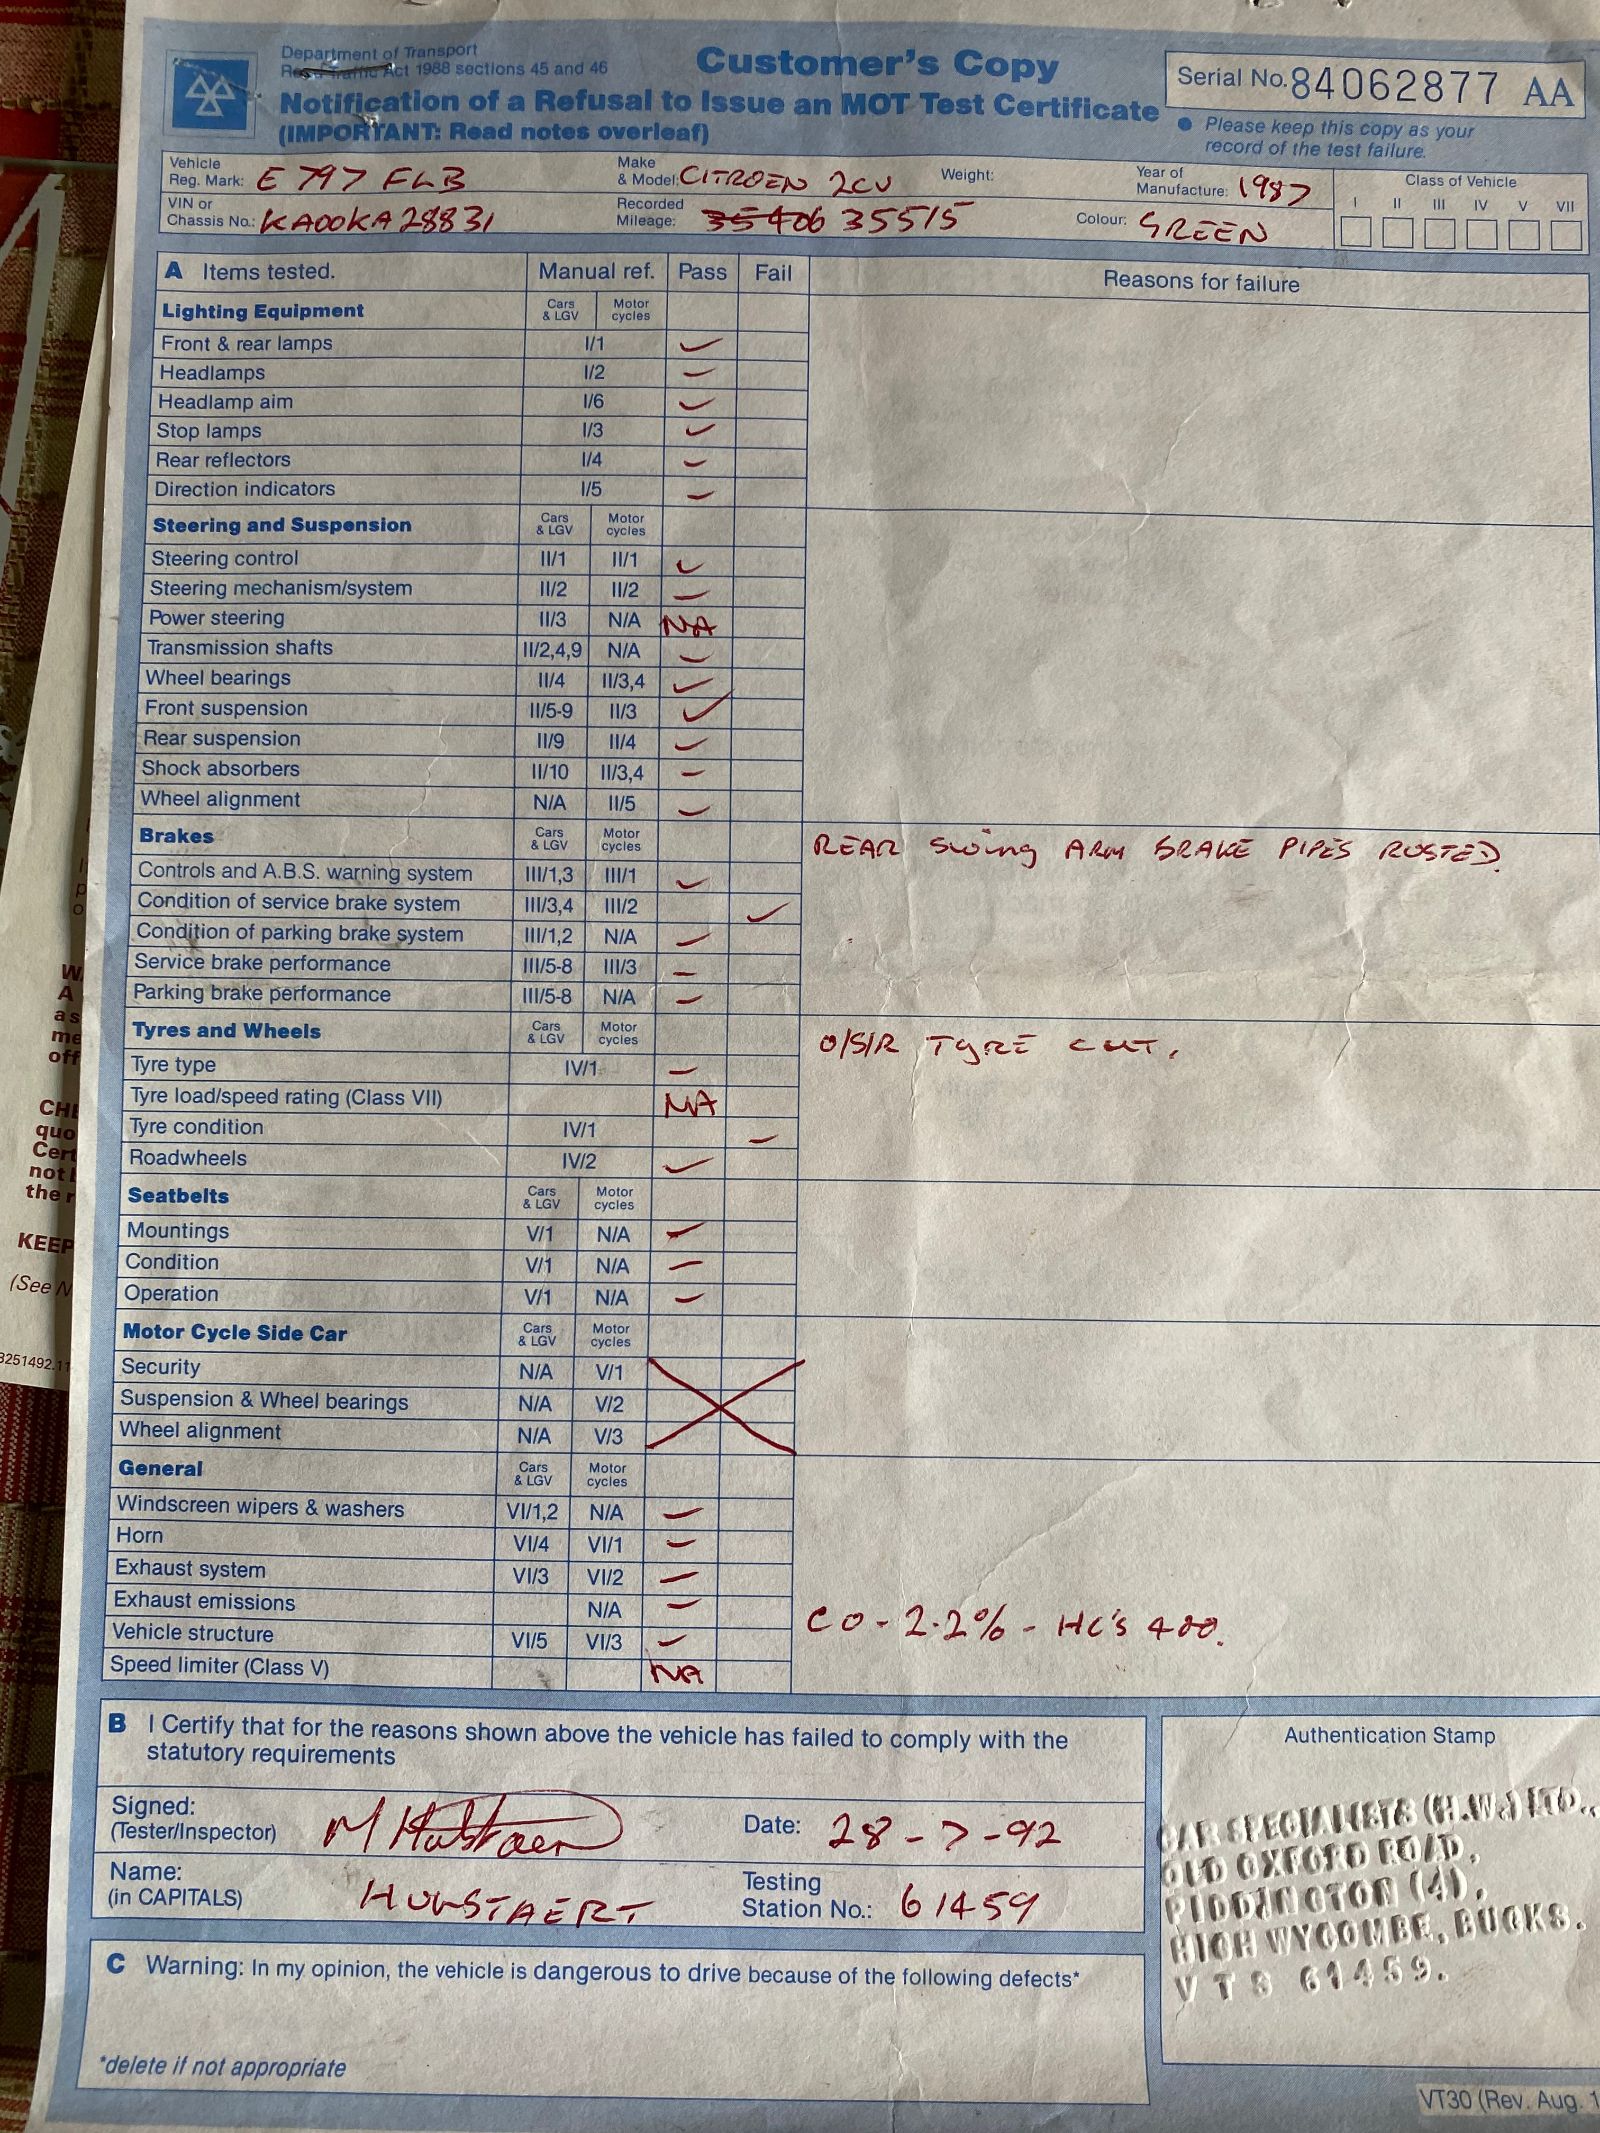 Department of Transport
Road Traffic Act 1988 sections 45 and 46
Customer's Copy
Notification of a Refusal to Issue an MOT Test Certificate
(IMPORTANT: Read notes overleaf)
Serial No. 84062877 AA
● Please keep this copy as your
record of the test failure.
Vehicle
Reg. Mark: E797 FLB
Make
& Model: CITROEN 2CV
Weight:
Year of
Manufacture: 1987
Class of Vehicle
I II III IV V VII
VIN or
Chassis No.: KA00KA28831
Recorded
Mileage: 35406 35515
Colour: GREEN
A Items tested. Manual ref. Pass Fail Reasons for failure
Lighting Equipment Cars & LGV Motor cycles
Front & rear lamps I/1 ✓
Headlamps I/2 ✓
Headlamp aim I/6 ✓
Stop lamps I/3 ✓
Rear reflectors I/4 ✓
Direction indicators I/5 ✓
Steering and Suspension Cars & LGV Motor cycles
Steering control II/1 II/1 ✓
Steering mechanism/system II/2 II/2 ✓
Power steering II/3 N/A NA
Transmission shafts II/2,4,9 N/A ✓
Wheel bearings II/4 II/3,4 ✓
Front suspension II/5-9 II/3 ✓
Rear suspension II/9 II/4 ✓
Shock absorbers II/10 II/3,4 ✓
Wheel alignment N/A II/5 ✓
Brakes Cars & LGV Motor cycles REAR Swing ARM BRAKE PIPES RUSTED.
Controls and A.B.S. warning system III/1,3 III/1 ✓
Condition of service brake system III/3,4 III/2 ✓
Condition of parking brake system III/1,2 N/A ✓
Service brake performance III/5-8 III/3 ✓
Parking brake performance III/5-8 N/A ✓
Tyres and Wheels Cars & LGV Motor cycles O/S/R TYRE CUT.
Tyre type IV/1 ✓
Tyre load/speed rating (Class VII) NA
Tyre condition IV/1 ✓
Roadwheels IV/2 ✓
Seatbelts Cars & LGV Motor cycles
Mountings V/1 N/A ✓
Condition V/1 N/A ✓
Operation V/1 N/A ✓
Motor Cycle Side Car Cars & LGV Motor cycles
Security N/A V/1
Suspension & Wheel bearings N/A V/2
Wheel alignment N/A V/3
General Cars & LGV Motor cycles
Windscreen wipers & washers VI/1,2 N/A ✓
Horn VI/4 VI/1 ✓
Exhaust system VI/3 VI/2 ✓
Exhaust emissions N/A ✓ CO - 2.2% - HC's 400.
Vehicle structure VI/5 VI/3 ✓
Speed limiter (Class V) NA
B I Certify that for the reasons shown above the vehicle has failed to comply with the
statutory requirements
Signed:
(Tester/Inspector)
Date: 28-7-92
Name:
(in CAPITALS) HULSTAERT
Testing
Station No.: 61459
Authentication Stamp
CAR SPECIALISTS (H.W.) LTD.,
OLD OXFORD ROAD,
PIDDINGTON (4),
HIGH WYCOMBE, BUCKS.
VTS 61459.
C Warning: In my opinion, the vehicle is dangerous to drive because of the following defects*
*delete if not appropriate
VT30 (Rev. Aug. 1
CH
quo
Cert
not
the r
KEEP
(See N
8251492.11